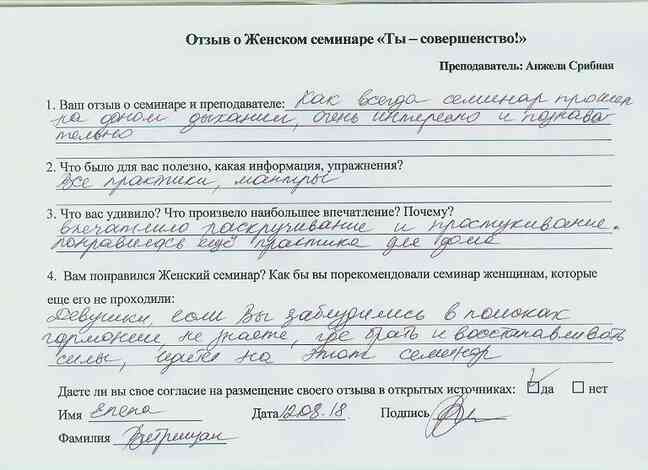 Отзыв о Женском семинаре «Ты – совершенство!»
Преподаватель: Анжела Срибная
1. Ваш отзыв о семинаре и преподавателе: Как всегда семинар прошел
на одном дыхании, очень интересно и познава
тельно
2. Что было для вас полезно, какая информация, упражнения?
Все практики, мантры
3. Что вас удивило? Что произвело наибольшее впечатление? Почему?
впечатлило раскручивание и простукивание.
понравилась ещё практика для дома
4. Вам понравился Женский семинар? Как бы вы порекомендовали семинар женщинам, которые
еще его не проходили:
Девушки, если Вы заблудились в поисках
гармонии, не знаете, где брать и восстанавливать
силы, идите на этот семинар
Даете ли вы свое согласие на размещение своего отзыва в открытых источниках: да нет
Имя Елена Дата 12.08.18. Подпись
Фамилия